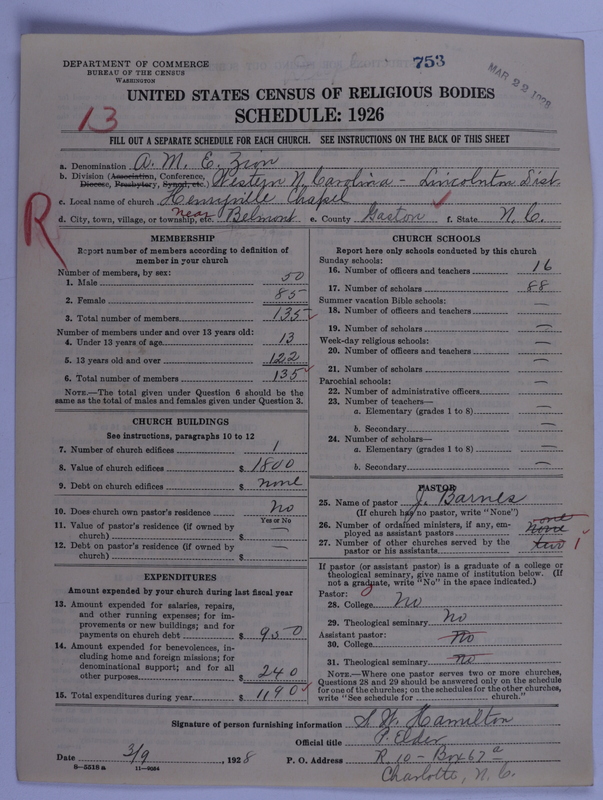 DEPARTMENT OF COMMERCE
BUREAU OF THE CENSUS
WASHINGTON
753
MAR 22 1928
13
UNITED STATES CENSUS OF RELIGIOUS BODIES
SCHEDULE: 1926
FILL OUT A SEPARATE SCHEDULE FOR EACH CHURCH. SEE INSTRUCTIONS ON THE BACK OF THIS SHEET
R
a. Denomination A. M. E. Zion
b. Division (Association, Conference, Diocese, Presbytery, Synod, etc.) Western N. Carolina - Lincolnton Dist.
c. Local name of church Henryville Chapel
d. City, town, village, or township, etc. near Belmont e. County Gaston f. State N. C.
MEMBERSHIP
Report number of members according to definition of
member in your church
Number of members, by sex:
1. Male 50
2. Female 85
3. Total number of members 135
Number of members under and over 13 years old:
4. Under 13 years of age 13
5. 13 years old and over 122
6. Total number of members 135
NOTE.—The total given under Question 6 should be
same as the total of males and females given under Question 3.
CHURCH BUILDINGS
See instructions, paragraphs 10 to 12
7. Number of church edifices 1
8. Value of church edifices $ 1800
9. Debt on church edifices $ none
10. Does church own pastor's residence No
Yes or No
11. Value of pastor's residence (if owned by
church) $ —
12. Debt on pastor's residence (if owned by
church) $ —
EXPENDITURES
Amount expended by your church during last fiscal year
13. Amount expended for salaries, repairs,
and other running expenses; for im-
provements or new buildings; and for
payments on church debt $ 950
14. Amount expended for benevolences, in-
cluding home and foreign missions; for
denominational support; and for all
other purposes $ 240
15. Total expenditures during year $ 1190
CHURCH SCHOOLS
Report here only schools conducted by this church
Sunday schools:
16. Number of officers and teachers 16
17. Number of scholars 88
Summer vacation Bible schools:
18. Number of officers and teachers —
19. Number of scholars —
Week-day religious schools:
20. Number of officers and teachers —
21. Number of scholars —
Parochial schools:
22. Number of administrative officers —
23. Number of teachers—
a. Elementary (grades 1 to 8) —
b. Secondary —
24. Number of scholars—
a. Elementary (grades 1 to 8) —
b. Secondary —
PASTOR
25. Name of pastor J. Barnes
(If church has no pastor, write "None")
26. Number of ordained ministers, if any, em-
ployed as assistant pastors one none
27. Number of other churches served by the
pastor or his assistants two 1
If pastor (or assistant pastor) is a graduate of a college or
theological seminary, give name of institution below. (If
not a graduate, write "No" in the space indicated.)
Pastor:
28. College No
29. Theological seminary No
Assistant pastor:
30. College No
31. Theological seminary No
NOTE.—Where one pastor serves two or more churches,
Questions 28 and 29 should be answered only on the schedule
for one of the churches; on the schedules for the other churches,
write "See schedule for church."
Signature of person furnishing information S. W. Hamilton
Official title P. Elder
Date 3/9, 1928 P. O. Address R. 10 - Box 67 a
8—5518 a 11—9034
Charlotte, N. C.